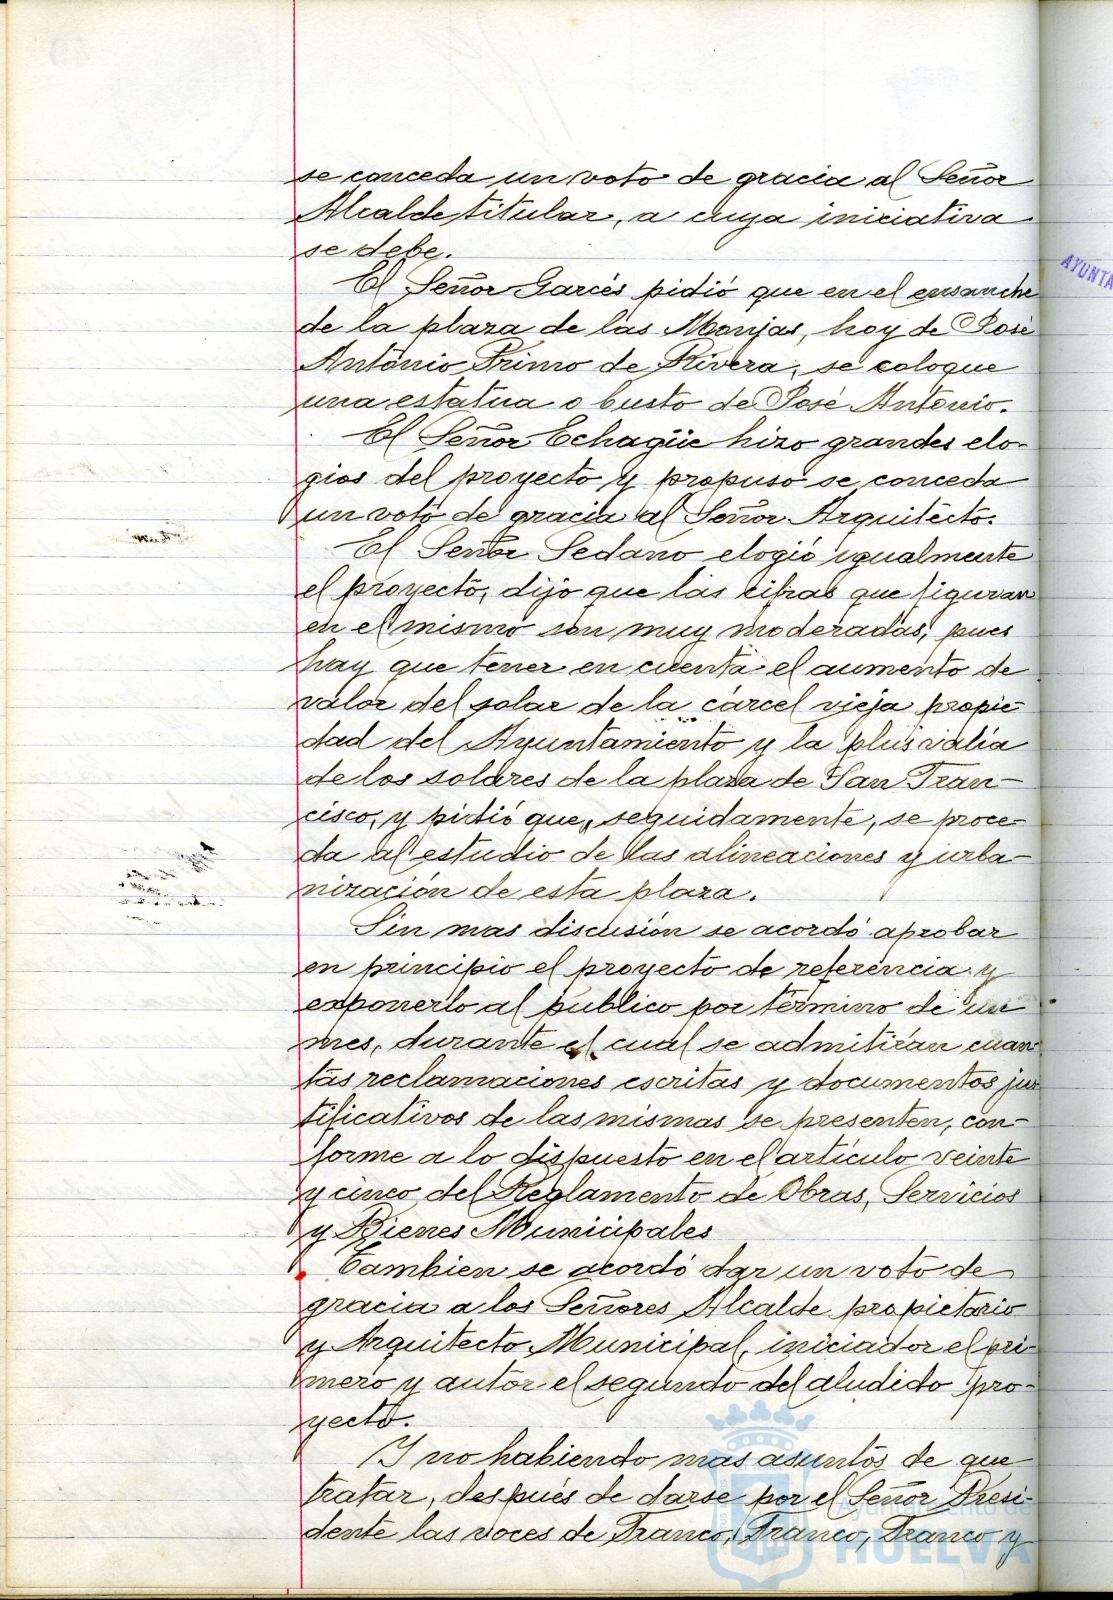 se conceda un voto de gracia al Señor
Alcalde titular, a cuya iniciativa
se debe.
El Señor Garcés pidió que en el ensanche
de la plaza de las Monjas, hoy de José
Antonio Primo de Rivera, se coloque
una estatua o busto de José Antonio.
El Señor Echagüe hizo grandes elo-
gios del proyecto y propuso se conceda
un voto de gracia al Señor Arquitecto.
El Señor Sedano elogió igualmente
el proyecto, dijo que las cifras que figuran
en el mismo son muy moderadas, pues
hay que tener en cuenta el aumento de
valor del solar de la cárcel vieja propie-
dad del Ayuntamiento y la plus valía
de los solares de la plaza de San Fran-
cisco, y pidió que, seguidamente, se proce-
da al estudio de las alineaciones y urba-
nización de esta plaza.
Sin mas discusión se acordó aprobar
en principio el proyecto de referencia y
exponerlo al publico por término de un
mes, durante el cual se admitirán cuan-
tas reclamaciones escritas y documentos jus
tificativos de las mismas se presenten, con-
forme a lo dispuesto en el artículo veinte
y cinco del Reglamento de Obras, Servicios
y Bienes Municipales
Tambien se acordó dar un voto de
gracia a los Señores Alcalde propietario
y Arquitecto Municipal, iniciador el pri-
mero y autor el segundo del aludido pro-
yecto.
Y no habiendo mas asuntos de que
tratar, después de darse por el Señor Presi-
dente las voces de Franco, Franco, Franco y
AYUNTA
Ayuntamiento de
HUELVA